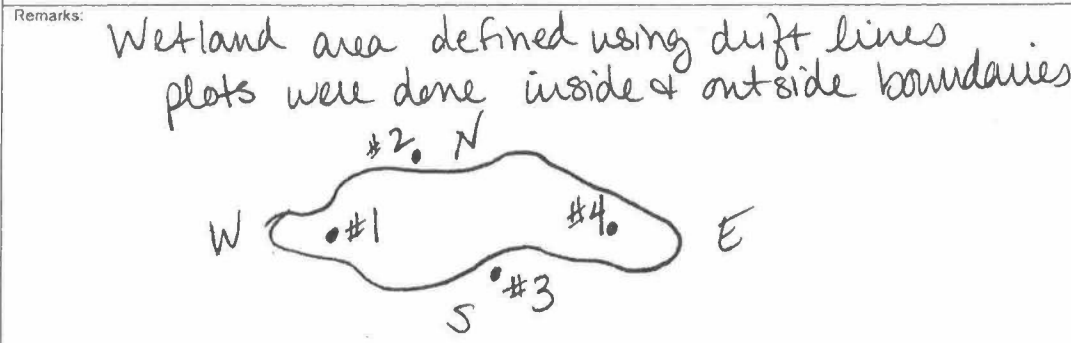 Remarks:
Wetland area defined using drift lines
plots were done inside & outside boundaries
#2 N
W #1 #4 E
#3
S